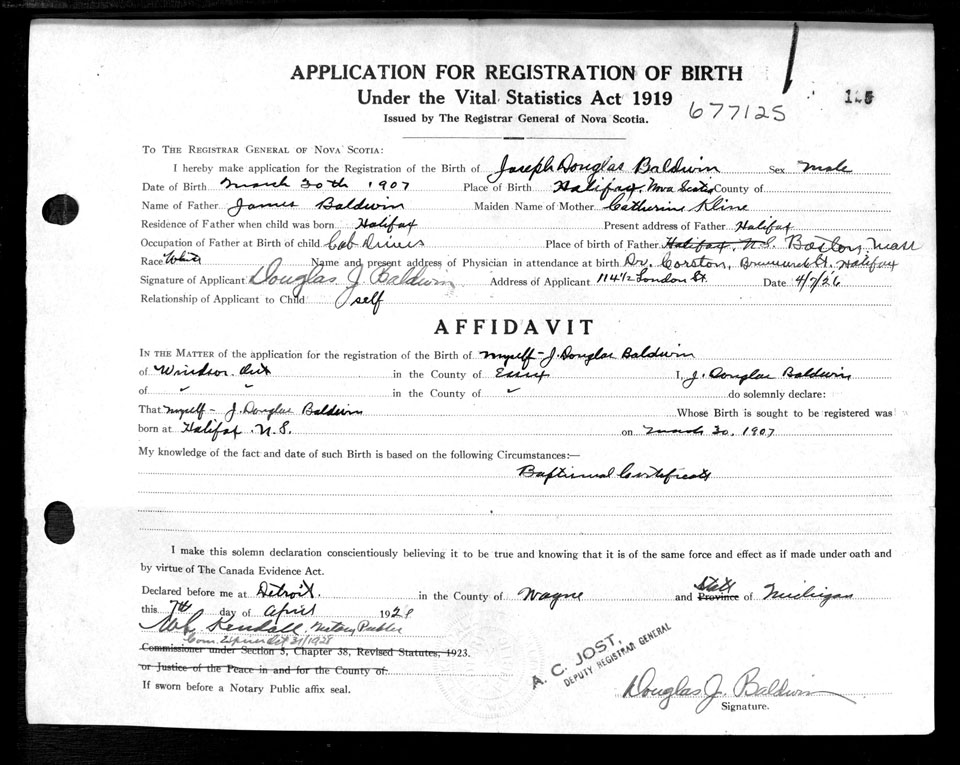 APPLICATION FOR REGISTRATION OF BIRTH
Under the Vital Statistics Act 1919
Issued by The Registrar General of Nova Scotia.
677125
TO THE REGISTRAR GENERAL OF NOVA SCOTIA:
I hereby make application for the Registration of the Birth of Joseph Douglas Baldwin Sex Male
Date of Birth March 30th 1907 Place of Birth Halifax, Nova Scotia County of
Name of Father James Baldwin Maiden Name of Mother Catherine Kline
Residence of Father when child was born Halifax Present address of Father Halifax
Occupation of Father at Birth of child Cab Driver Place of birth of Father Halifax, N.S. Boston, Mass
Race White Name and present address of Physician in attendance at birth Dr. St. Halifax
Signature of Applicant Douglas J. Baldwin Address of Applicant 114½ London St. Date 4/7/26
Relationship of Applicant to Child self
AFFIDAVIT
IN THE MATTER of the application for the registration of the Birth of myself - J. Douglas Baldwin
of Windsor. Ont in the County of Essex I, J. Douglas Baldwin
of " in the County of " do solemnly declare:
That myself - J. Douglas Baldwin Whose Birth is sought to be registered was
born at Halifax, N.S. on March 30, 1907
My knowledge of the fact and date of such Birth is based on the following Circumstances:—
Baptismal Certificate
I make this solemn declaration conscientiously believing it to be true and knowing that it is of the same force and effect as if made under oath and
by virtue of The Canada Evidence Act.
Declared before me at Detroit in the County of Wayne and State Province of Michigan
this 7th day of April 192
Kendall Notary Public
Com. Expires Oct 31/1928
Commissioner under Section 3, Chapter 38, Revised Statutes, 1923.
or Justice of the Peace in and for the County of
If sworn before a Notary Public affix seal.
A. C. JOST,
DEPUTY REGISTRAR GENERAL
Douglas J. Baldwin
Signature.